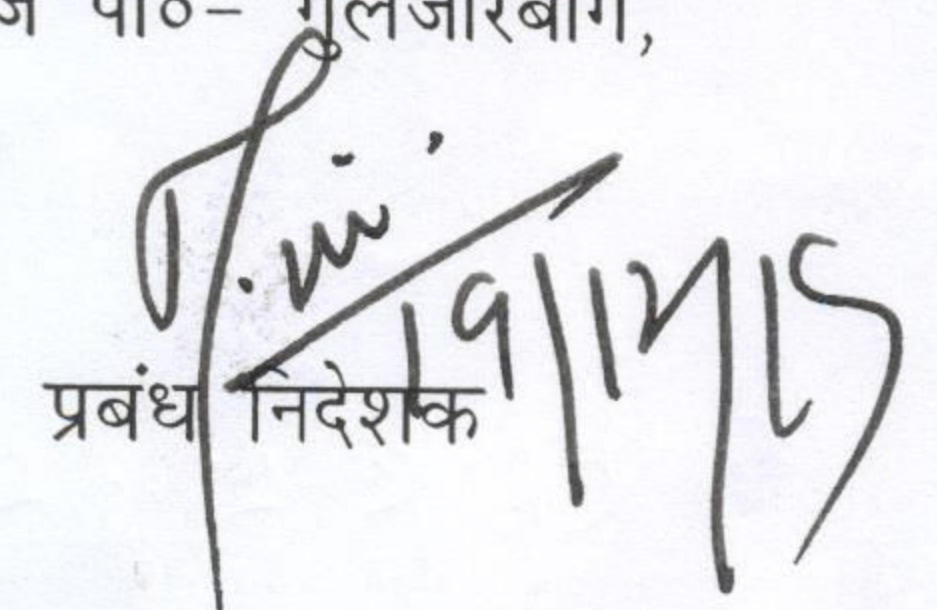 पो०– गुलजारबाग,
19/12/15
प्रबंध निदेशक